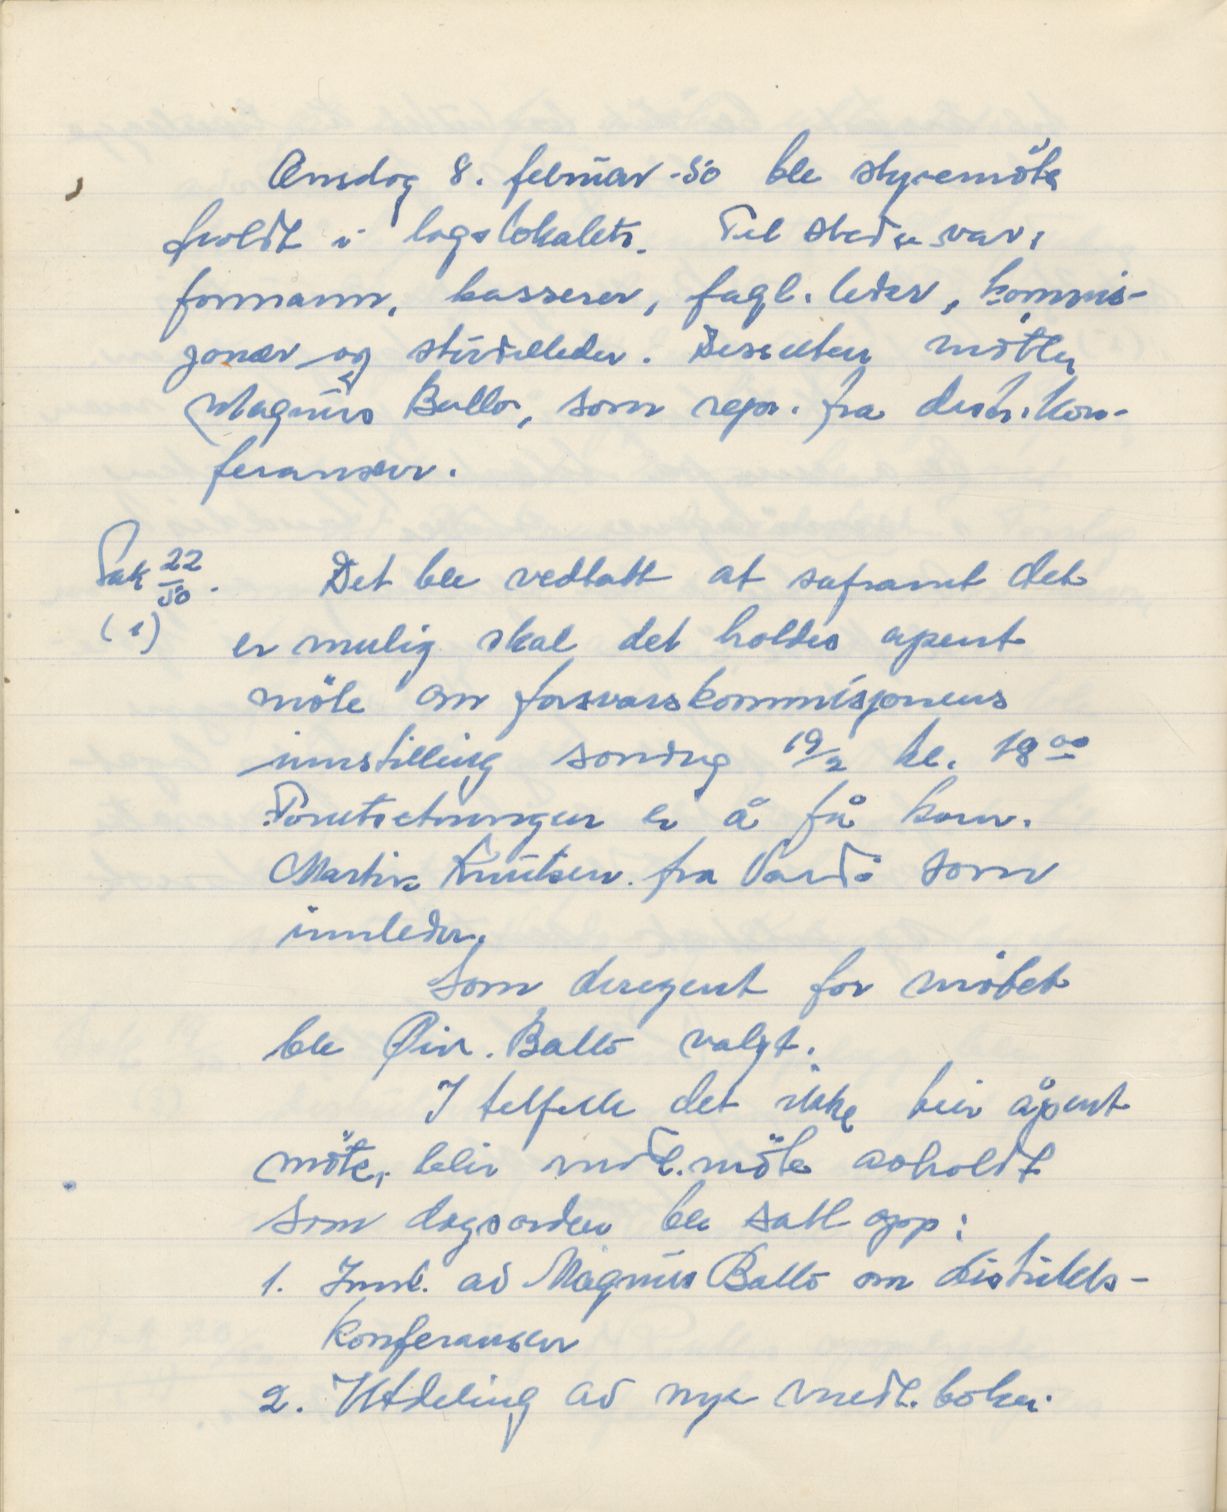 Onsdag 8. februar -50 ble styremöte
holdt i lagslokalet. Til stede var:
formann, kasserer, fagl. leder, kommis-
jonær og studieleder. Dessuten møtte
Magnus Ballo, som repr. fra distr. kon-
feransen.
Sak 22/50.
(1)
Det ble vedtatt at såframt det
er mulig skal det holdes åpent
möte om forsvarskommisjonens
innstilling söndag 19/2 kl. 18 00
Forutsetningen er å få kam.
Martin Knutsen fra Vardö som
innleder.
Som diregent for mötet
ble Øiv. Ballo valgt.
I tilfelle det ikke blir åpent
möte, blir medl.möte avholdt
Som dagsorden ble satt opp:
1. Innl. av Magnus Ballo om distrikts-
konferansen
2. Utdeling av nye medl.böker.